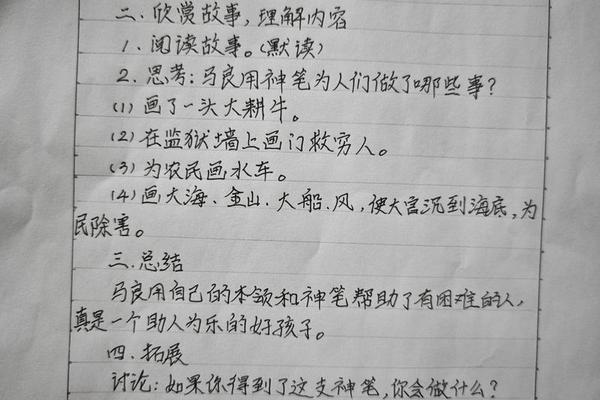 二.欣赏故事,理解内容
1.阅读故事。(默读)
2.思考:马良用神笔为人们做了哪些事?
(1)画了一头大耕牛。
(2)在监狱墙上画门救穷人。
(3)为农民画水车。
(4)画大海、金山、大船、风,使大官沉到海底,为
民除害。
三.总结
马良用自己的本领和神笔帮助了有困难的人,
真是一个助人为乐的好孩子。
四.拓展
讨论:如果你得到了这支神笔,你会做什么?